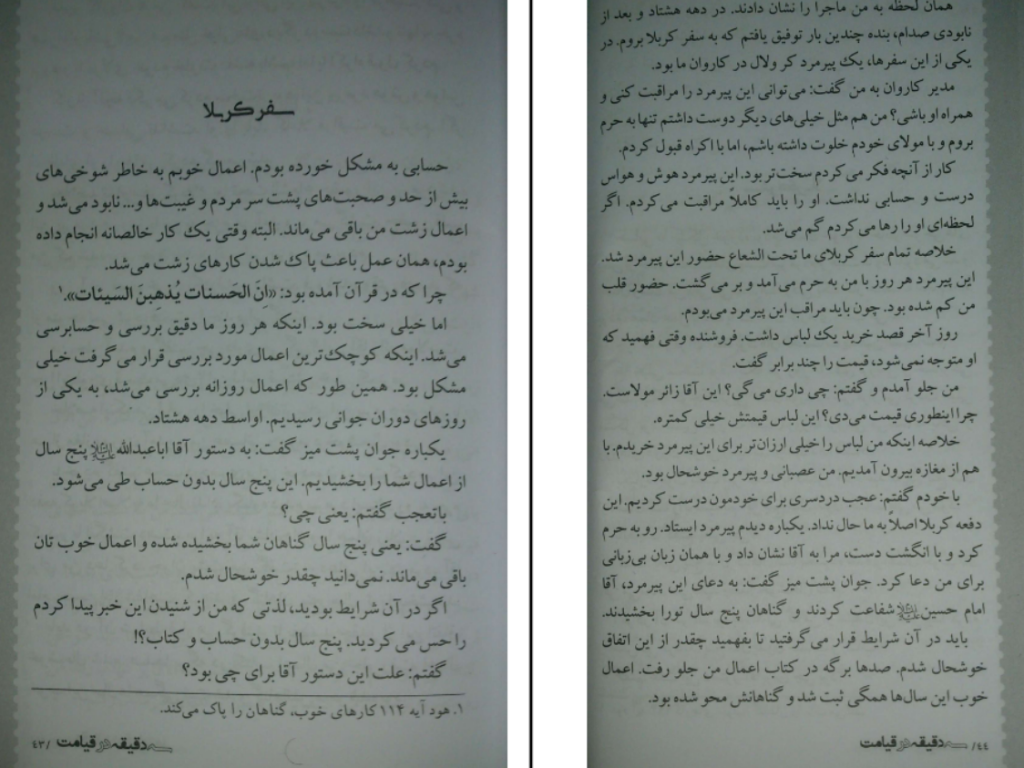 سفر کربلا
حسابی به مشکل خورده بودم. اعمال خوبم به خاطر شوخی‌های
بیش از حد و صحبت‌های پشت سر مردم و غیبت‌ها و... نابود می‌شد و
اعمال زشت من باقی می‌ماند. البته وقتی یک کار خالصانه انجام داده
بودم، همان عمل باعث پاک شدن کارهای زشت می‌شد.
چرا که در قرآن آمده بود: «اِنَ الحَسنات یُذهِبنَ السَیئات».۱
اما خیلی سخت بود. اینکه هر روز ما دقیق بررسی و حسابرسی
می‌شد. اینکه کوچک‌ترین اعمال مورد بررسی قرار می‌گرفت خیلی
مشکل بود. همین طور که اعمال روزانه بررسی می‌شد، به یکی از
روزهای دوران جوانی رسیدیم. اواسط دهه هشتاد.
یکباره جوان پشت میز گفت: به دستور آقا اباعبدالله پنج سال
از اعمال شما را بخشیدیم. این پنج سال بدون حساب طی می‌شود.
با تعجب گفتم: یعنی چی؟
گفت: یعنی پنج سال گناهان شما بخشیده شده و اعمال خوب تان
باقی می‌ماند. نمی‌دانید چقدر خوشحال شدم.
اگر در آن شرایط بودید، لذتی که من از شنیدن این خبر پیدا کردم
را حس می‌کردید. پنج سال بدون حساب و کتاب؟!
گفتم: علت این دستور آقا برای چی بود؟
۱. هود آیه ۱۱۴ کارهای خوب، گناهان را پاک می‌کند.
سه دقیقه در قیامت /۴۳
همان لحظه به من ماجرا را نشان دادند. در دهه هشتاد و بعد از
نابودی صدام، بنده چندین بار توفیق یافتم که به سفر کربلا بروم. در
یکی از این سفرها، یک پیرمرد کر ولال در کاروان ما بود.
مدیر کاروان به من گفت: می‌توانی این پیرمرد را مراقبت کنی و
همراه او باشی؟ من هم مثل خیلی‌های دیگر دوست داشتم تنها به حرم
بروم و با مولای خودم خلوت داشته باشم، اما با اکراه قبول کردم.
کار از آنچه فکر می‌کردم سخت‌تر بود. این پیرمرد هوش و هواس
درست و حسابی نداشت. او را باید کاملاً مراقبت می‌کردم. اگر
لحظه‌ای او را رها می‌کردم گم می‌شد.
خلاصه تمام سفر کربلای ما تحت الشعاع حضور این پیرمرد شد.
این پیرمرد هر روز با من به حرم می‌آمد و بر می‌گشت. حضور قلب
من کم شده بود. چون باید مراقب این پیرمرد می‌بودم.
روز آخر قصد خرید یک لباس داشت. فروشنده وقتی فهمید که
او متوجه نمی‌شود، قیمت را چند برابر گفت.
من جلو آمدم و گفتم: چی داری می‌گی؟ این آقا زائر مولاست.
چرا اینطوری قیمت می‌دی؟ این لباس قیمتش خیلی کمتره.
خلاصه اینکه من لباس را خیلی ارزان‌تر برای این پیرمرد خریدم. با
هم از مغازه بیرون آمدیم. من عصبانی و پیرمرد خوشحال بود.
با خودم گفتم: عجب دردسری برای خودمون درست کردیم. این
دفعه کربلا اصلاً به ما حال نداد. یکباره دیدم پیرمرد ایستاد. رو به حرم
کرد و با انگشت دست، مرا به آقا نشان داد و با همان زبان بی‌زبانی
برای من دعا کرد. جوان پشت میز گفت: به دعای این پیرمرد، آقا
امام حسین شفاعت کردند و گناهان پنج سال تورا بخشیدند.
باید در آن شرایط قرار می‌گرفتید تا بفهمید چقدر از این اتفاق
خوشحال شدم. صدها برگه در کتاب اعمال من جلو رفت. اعمال
خوب این سال‌ها همگی ثبت شد و گناهانش محو شده بود.
۴۴/ سه دقیقه در قیامت